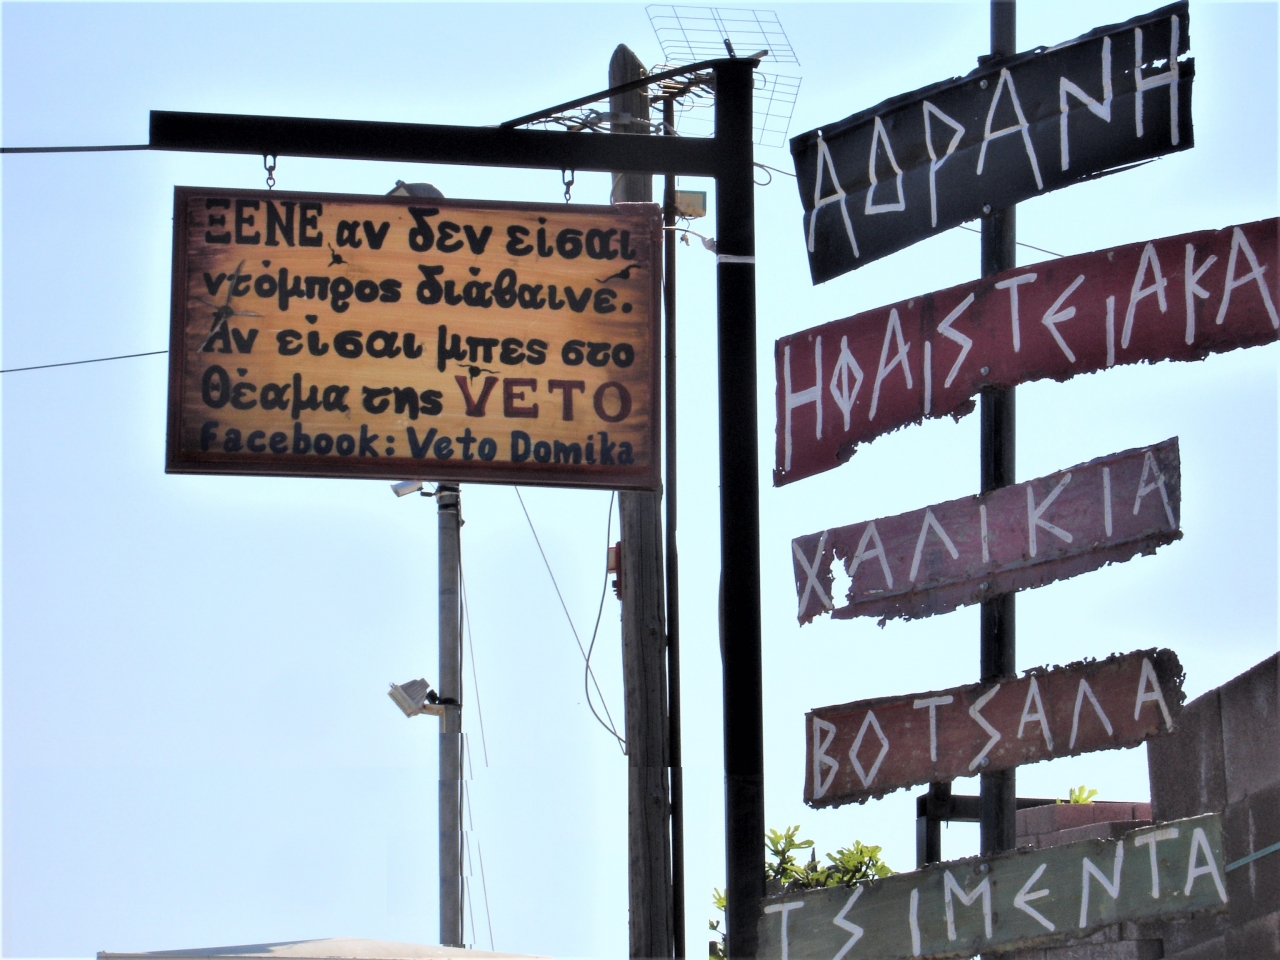 ΞΕΝΕ αν δεν είσαι
ντόμπρος διάβαινε.
Αν είσαι μπες στο
Θέαμα της VETO
facebook: Veto Domika
ΑΔΡΑΝΗ
ΗΦΑΙSΤΕΙΑΚΑ
ΧΑΛΙΚΙΑ
ΒΟΤSΑΛΑ
ΤSΙΜΕΝΤΑ